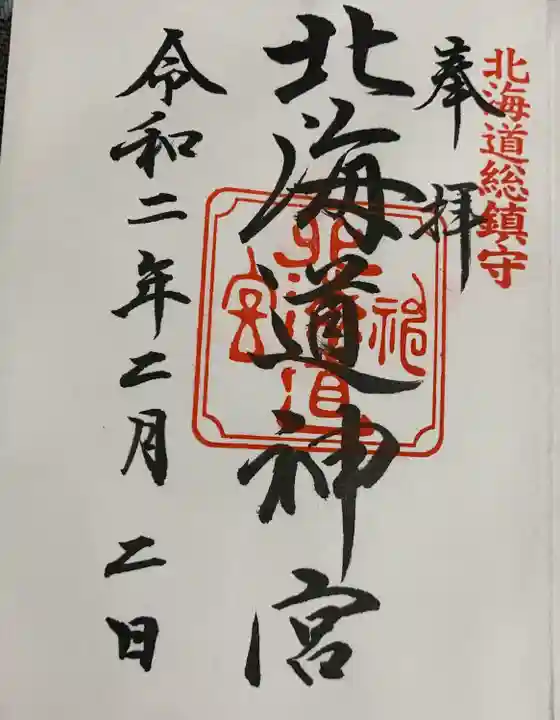 北海道総鎮守
奉拝
北海道神宮
北海道
神
宮
令和二年二月二日